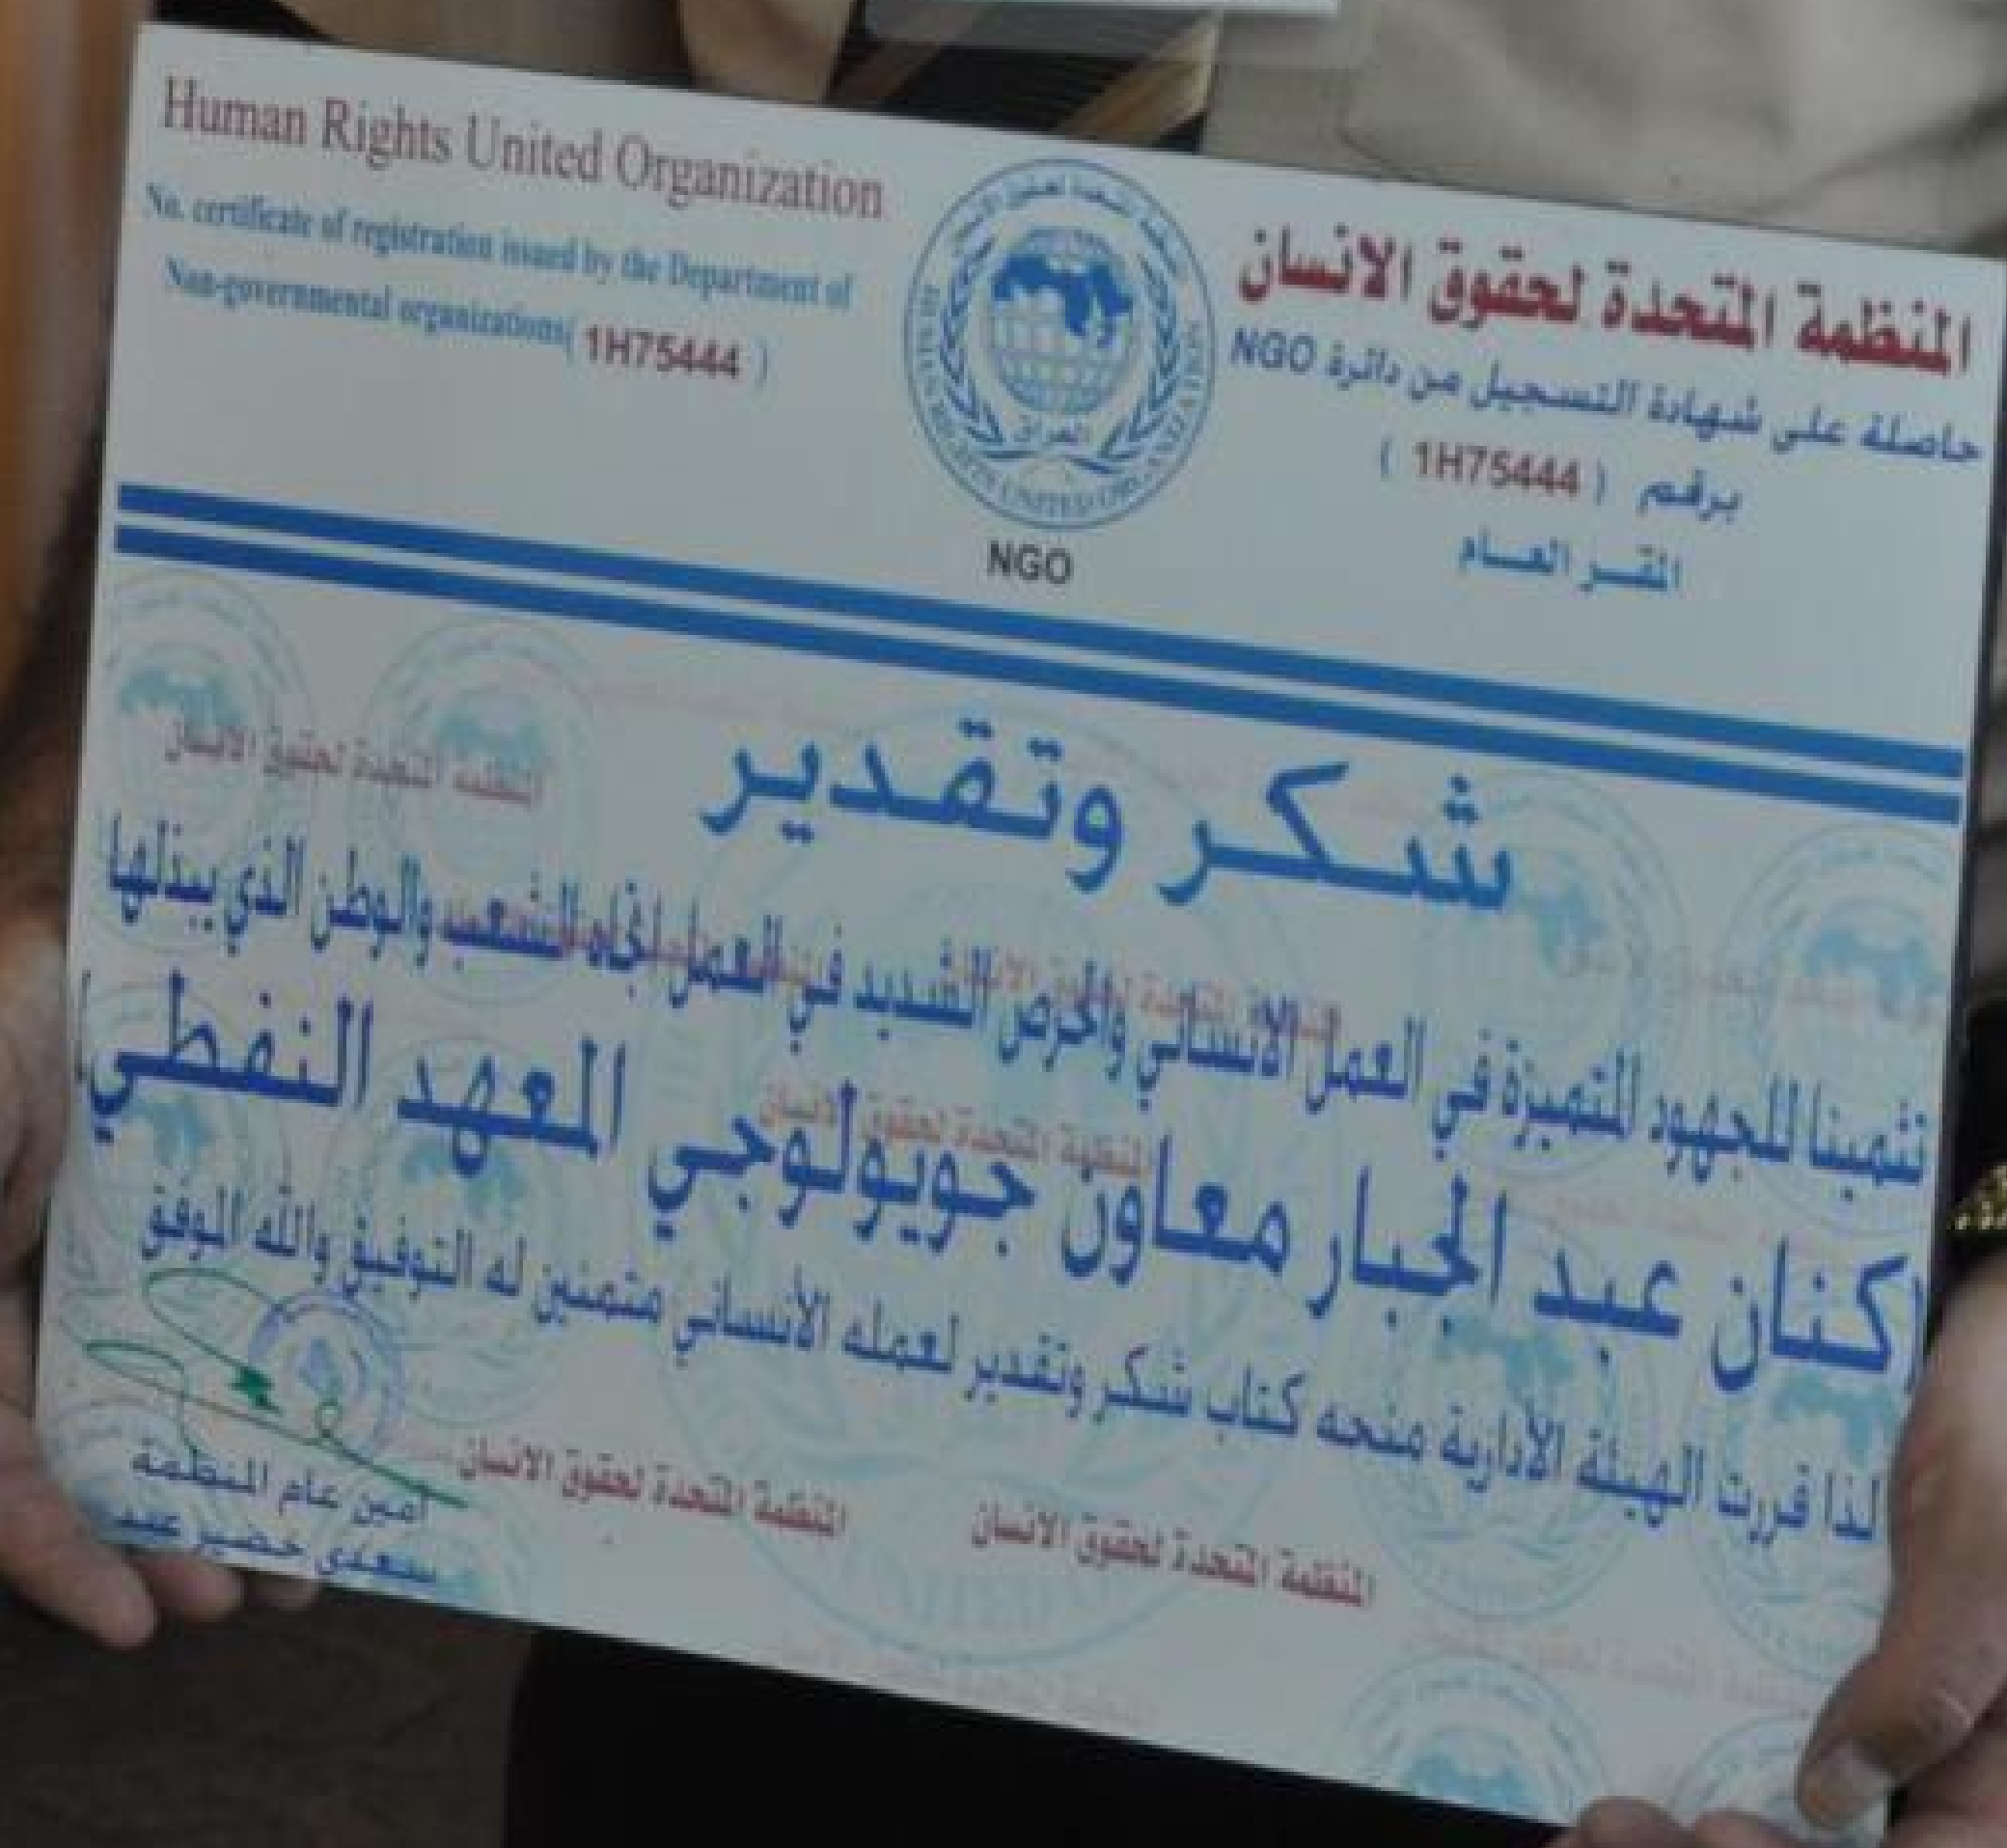 Human Rights United Organization
No. certificate of registration issued by the Department of
Non-governmental organizations( 1H75444 )
المنظمة المتحدة لحقوق الانسان
حاصلة على شهادة التسجيل من دائرة NGO
برقم ( 1H75444 )
المقر العام
العراق
HUMAN RIGHTS UNITED ORGANIZATION
NGO
شكر وتقدير
المنظمة المتحدة لحقوق الانسان
تثمينا للجهود المتميزة في العمل الانساني والحرص الشديد في العمل اتجاه الشعب والوطن الذي يبذلها
المنظمة المتحدة لحقوق الانسان
(كنان عبد الجبار معاون جويولوجي المعهد النفطي)
لذا قررت الهيئة الأدارية منحه كتاب شكر وتقدير لعمله الأنساني متمنين له التوفيق والله الموفق
المنظمة المتحدة لحقوق الانسان
المنظمة المتحدة لحقوق الانسان
امين عام المنظمة
سعدي خضير